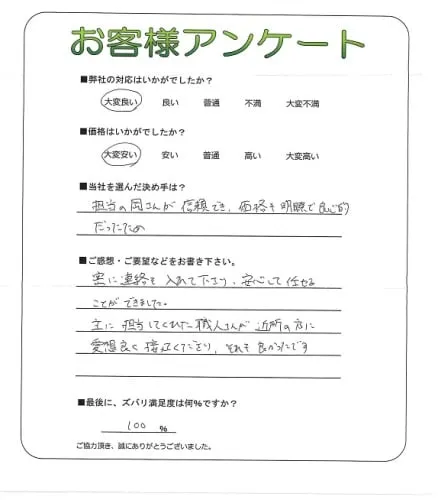 お客様アンケート
■弊社の対応はいかがでしたか？
大変良い 良い 普通 不満 大変不満
■価格はいかがでしたか？
大変安い 安い 普通 高い 大変高い
■当社を選んだ決め手は？
担当の岡さんが信頼でき、価格も明瞭で良心的
だったため
■ご感想・ご要望などをお書き下さい。
密に連絡を入れて下さり、安心して任せる
ことができました。
主に担当してくれた職人さんが近所の方に
愛想良く接してくださり、それも良かったです
■最後に、ズバリ満足度は何%ですか？
100 %
ご協力頂き、誠にありがとうございました。